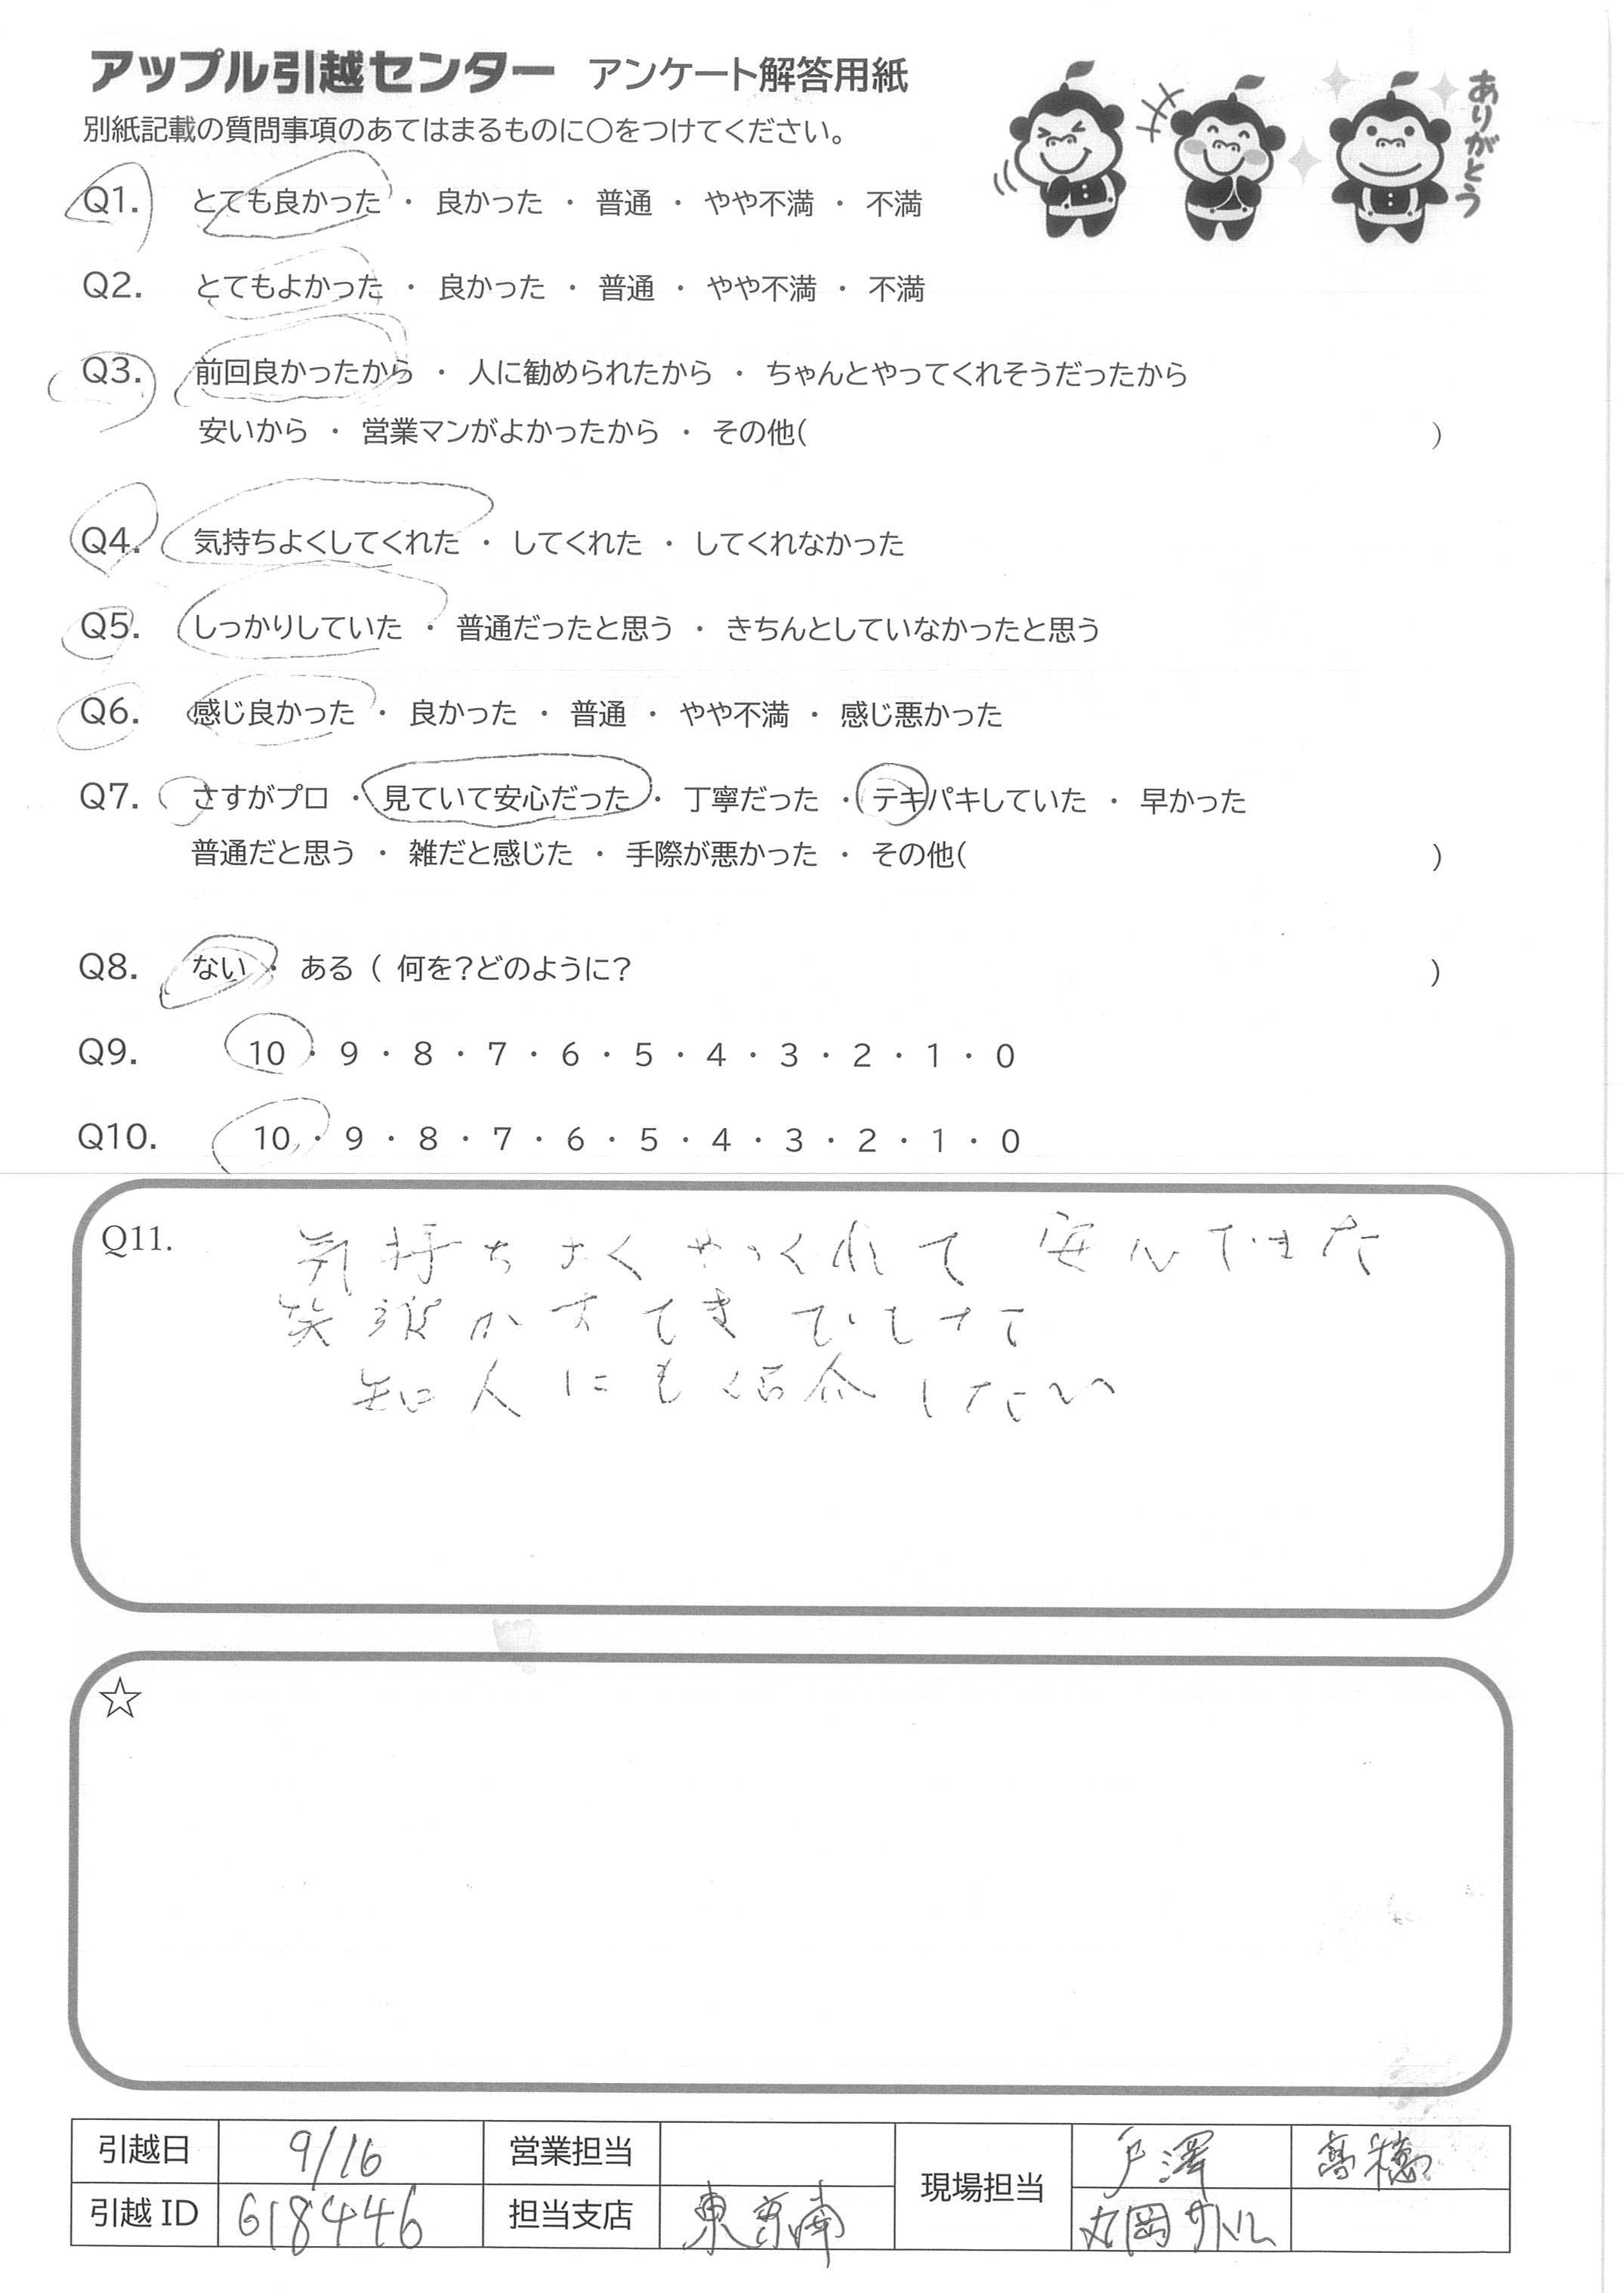 アップル引越センター アンケート解答用紙
別紙記載の質問事項のあてはまるものに○をつけてください。
ありがとう
Q1. とても良かった ・ 良かった ・ 普通 ・ やや不満 ・ 不満
Q2. とてもよかった ・ 良かった ・ 普通 ・ やや不満 ・ 不満
Q3. 前回良かったから ・ 人に勧められたから ・ ちゃんとやってくれそうだったから
安いから ・ 営業マンがよかったから ・ その他( )
Q4. 気持ちよくしてくれた ・ してくれた ・ してくれなかった
Q5. しっかりしていた ・ 普通だったと思う ・ きちんとしていなかったと思う
Q6. 感じ良かった ・ 良かった ・ 普通 ・ やや不満 ・ 感じ悪かった
Q7. さすがプロ ・ 見ていて安心だった ・ 丁寧だった ・ テキパキしていた ・ 早かった
普通だと思う ・ 雑だと感じた ・ 手際が悪かった ・ その他( )
Q8. ない ・ ある ( 何を?どのように? )
Q9. 10 ・ 9 ・ 8 ・ 7 ・ 6 ・ 5 ・ 4 ・ 3 ・ 2 ・ 1 ・ 0
Q10. 10 ・ 9 ・ 8 ・ 7 ・ 6 ・ 5 ・ 4 ・ 3 ・ 2 ・ 1 ・ 0
Q11. 気持ちよくやってくれて
笑顔がすてき
知人にも紹介したい
☆
引越日 9/16 営業担当 現場担当 戸澤 髙穂
引越ID 618446 担当支店 東京南 丸岡サトル